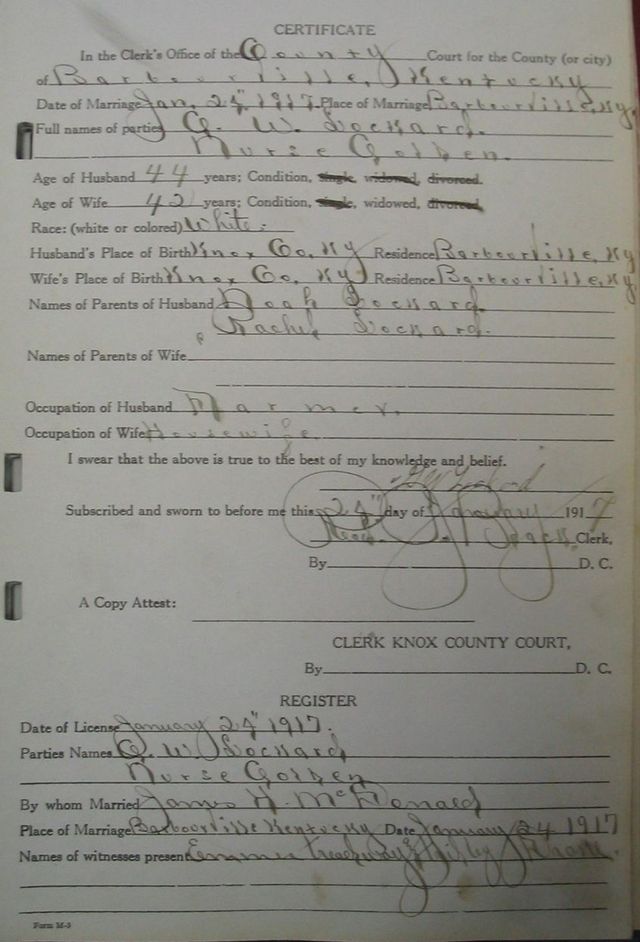 CERTIFICATE
In the Clerk's Office of the County Court for the County (or city)
of Barbourville, Kentucky
Date of Marriage Jan, 24" 1917. Place of Marriage Barbourville, Ky
Full names of parties G. W. Lockard.
Nurse Golden.
Age of Husband 44 years; Condition, single, widowed, divorced.
Age of Wife 42 years; Condition, single, widowed, divorced.
Race: (white or colored) White.
Husband's Place of Birth Knox Co, Ky Residence Barbourville, Ky
Wife's Place of Birth Knox Co, Ky Residence Barbourville, Ky
Names of Parents of Husband Noah Lockard
Rachel Lockard.
Names of Parents of Wife
Occupation of Husband Farmer.
Occupation of Wife Housewife
I swear that the above is true to the best of my knowledge and belief.
Subscribed and sworn to before me this 24" day of January 1917
Clerk,
By D. C.
A Copy Attest:
CLERK KNOX COUNTY COURT,
By D. C.
REGISTER
Date of License January 24" 1917.
Parties Names G. W. Lockard,
Nurse Golden
By whom Married James H. McDonald
Place of Marriage Barbourville Kentucky Date January 24 1917
Names of witnesses present Treadway &
Form M-3